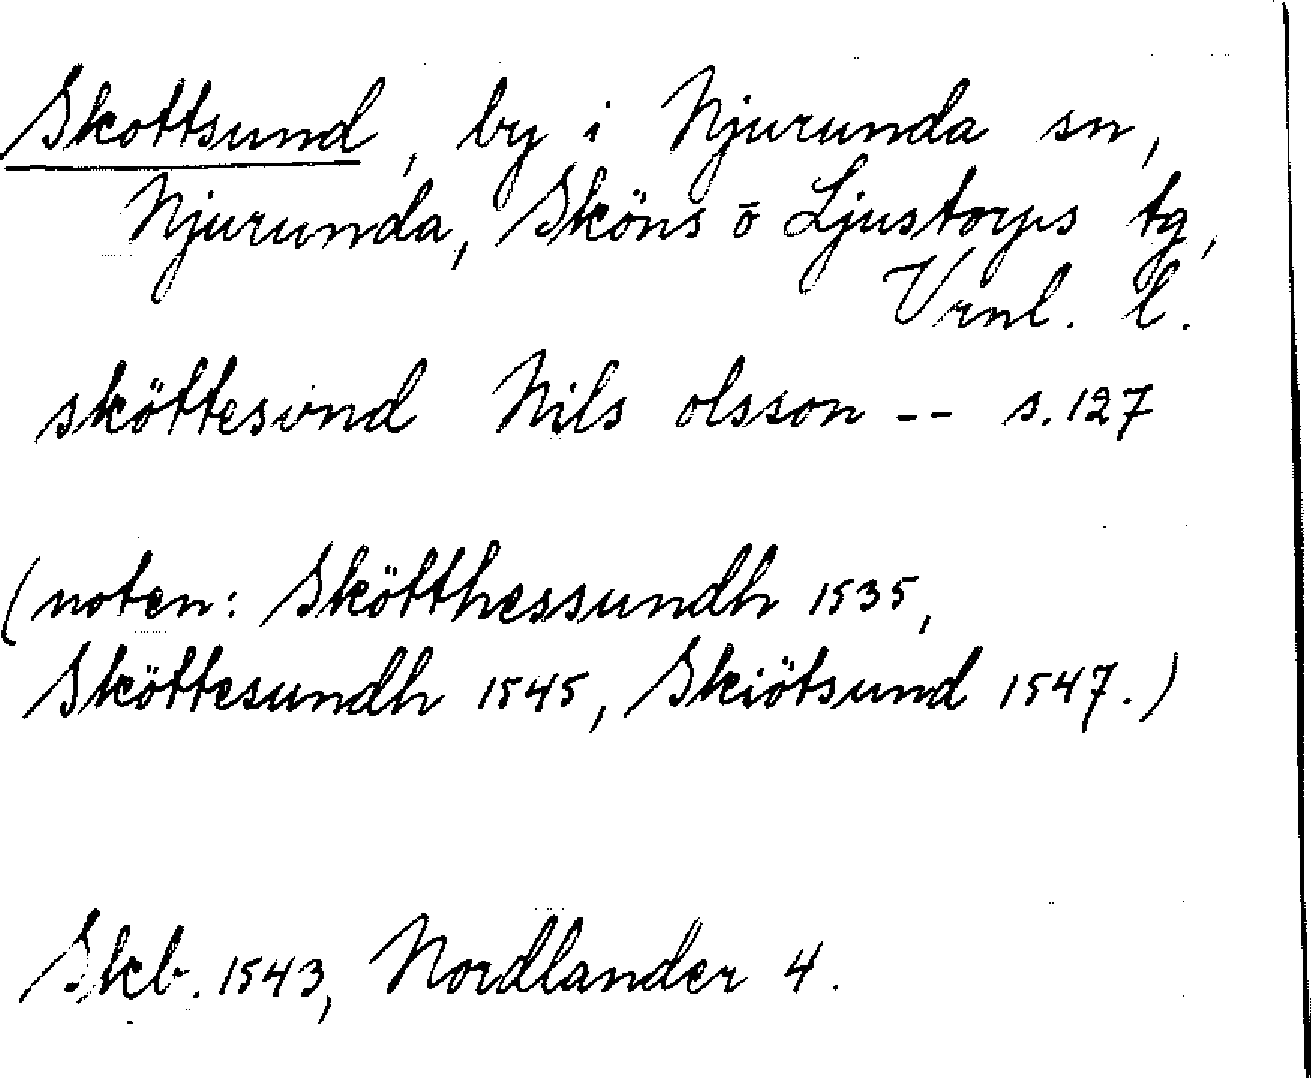 Skottsund, by i Njurunda sn,
Njurunda, Sköns ō Ljustorps tg,
Vrnl. l.
sköttesvnd Nils olsson -- s. 127
(noten: Skötthessundh 1535,
Sköttesundh 1545, Skiötsund 1547.)
Skb. 1543, Nordlander 4.